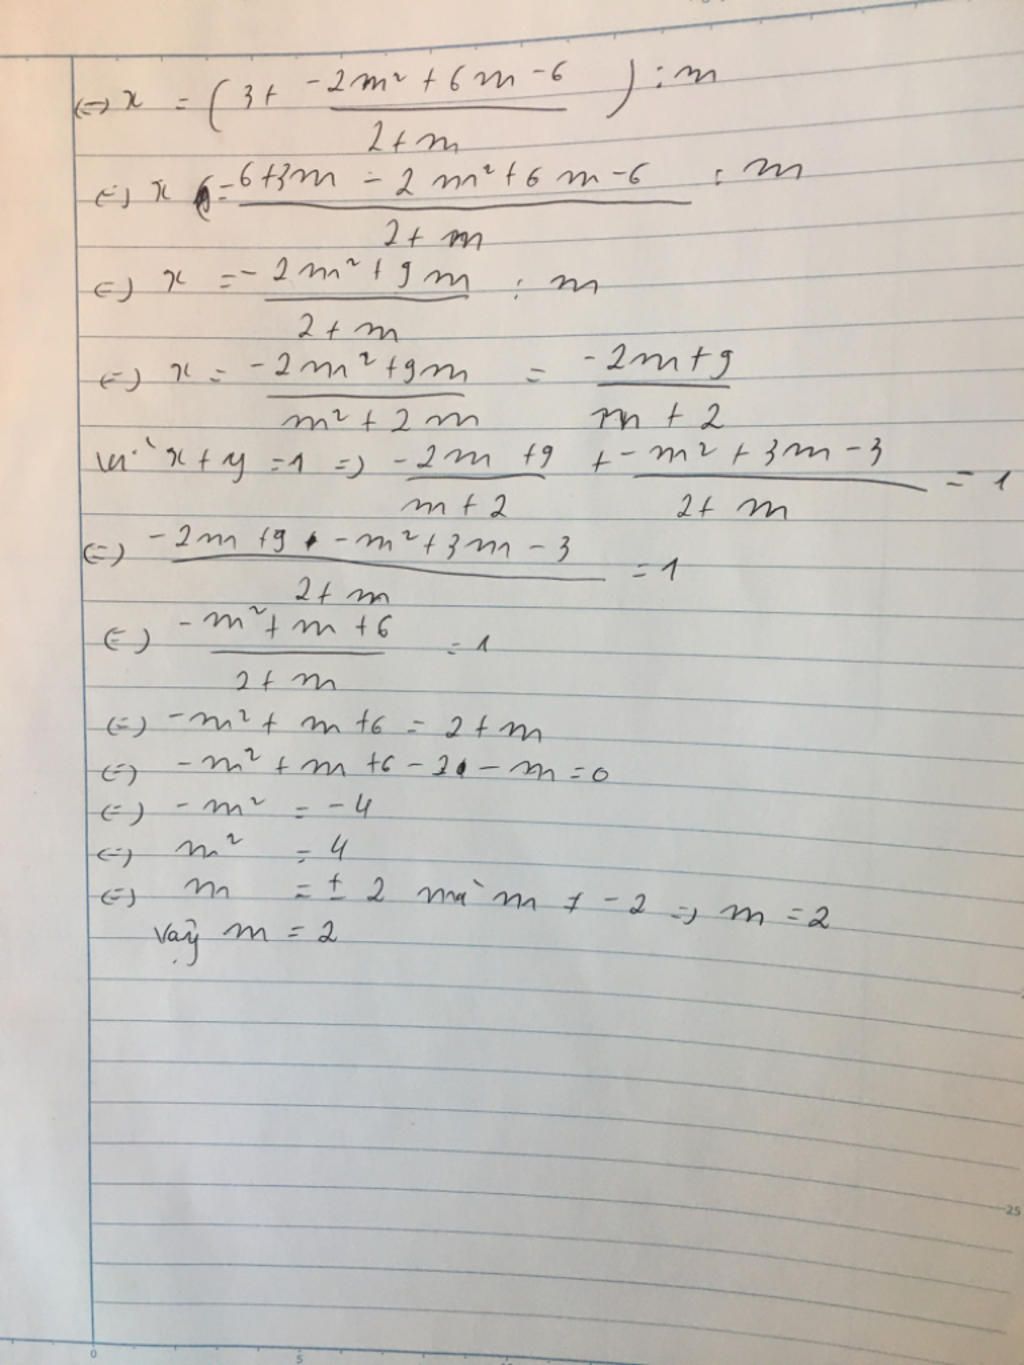 (=) x = (3 + (-2m² + 6m - 6)/(2 + m)) : m
(=) x = (6 + 3m - 2m² + 6m - 6)/(2 + m) : m
(=) x = (-2m² + 9m)/(2 + m) : m
(=) x = (-2m² + 9m)/(m² + 2m) = (-2m + 9)/(m + 2)
vì x + y = 1 => (-2m + 9)/(m + 2) + (-m² + 3m - 3)/(2 + m) = 1
(=) (-2m + 9 - m² + 3m - 3)/(2 + m) = 1
(=) (-m² + m + 6)/(2 + m) = 1
(=) -m² + m + 6 = 2 + m
(=) -m² + m + 6 - 2 - m = 0
(=) -m² = -4
(=) m² = 4
(=) m = ± 2 mà m ≠ -2 => m = 2
Vậy m = 2
25
0
5